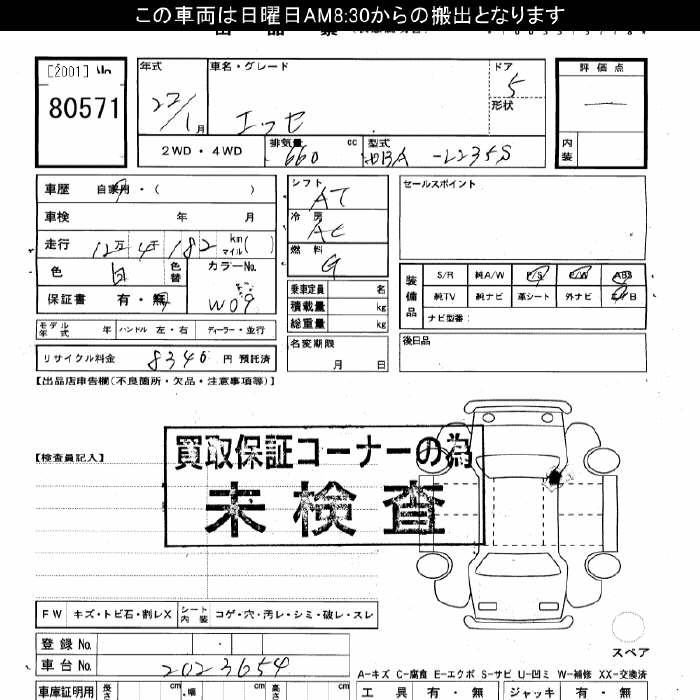 この車両は日曜日AM8:30からの搬出となります
[2001] No
80571
年式
22/1月
車名・グレード
エッセ
ドア
5
形状
評価点
内装
2WD・4WD
排気量
660 cc
型式
DBA-L235S
車歴 自家用・( )
車検 年 月
走行 12万4千182 km マイル( )
色 白 色替
カラーNo.
W09
保証書 有・無
モデル年式 年 ハンドル 左・右 ディーラー・並行
リサイクル料金 8340 円 預託済
シフト
AT
冷房
AC
燃料
G
乗車定員 名
積載量 kg
総重量 kg
名変期限
月 日
セールスポイント
装備品
S/R 純A/W P/S P/W ABS
純TV 純ナビ 革シート 外ナビ エアB
ナビ型番:
後日品
【出品店申告欄(不良箇所・欠品・注意事項等)】
【検査員記入】
買取保証コーナーの為
未検査
FW キズ・トビ石・割レX シート内装 コゲ・穴・汚レ・シミ・破レ・スレ
スペア
登録No.
車台No. 2023654
A-キズ C-腐食 E-エクボ S-サビ U-凹ミ W-補修 XX-交換済
車庫証明用 長さ cm 幅 cm 高さ cm
工具 有・無 ジャッキ 有・無